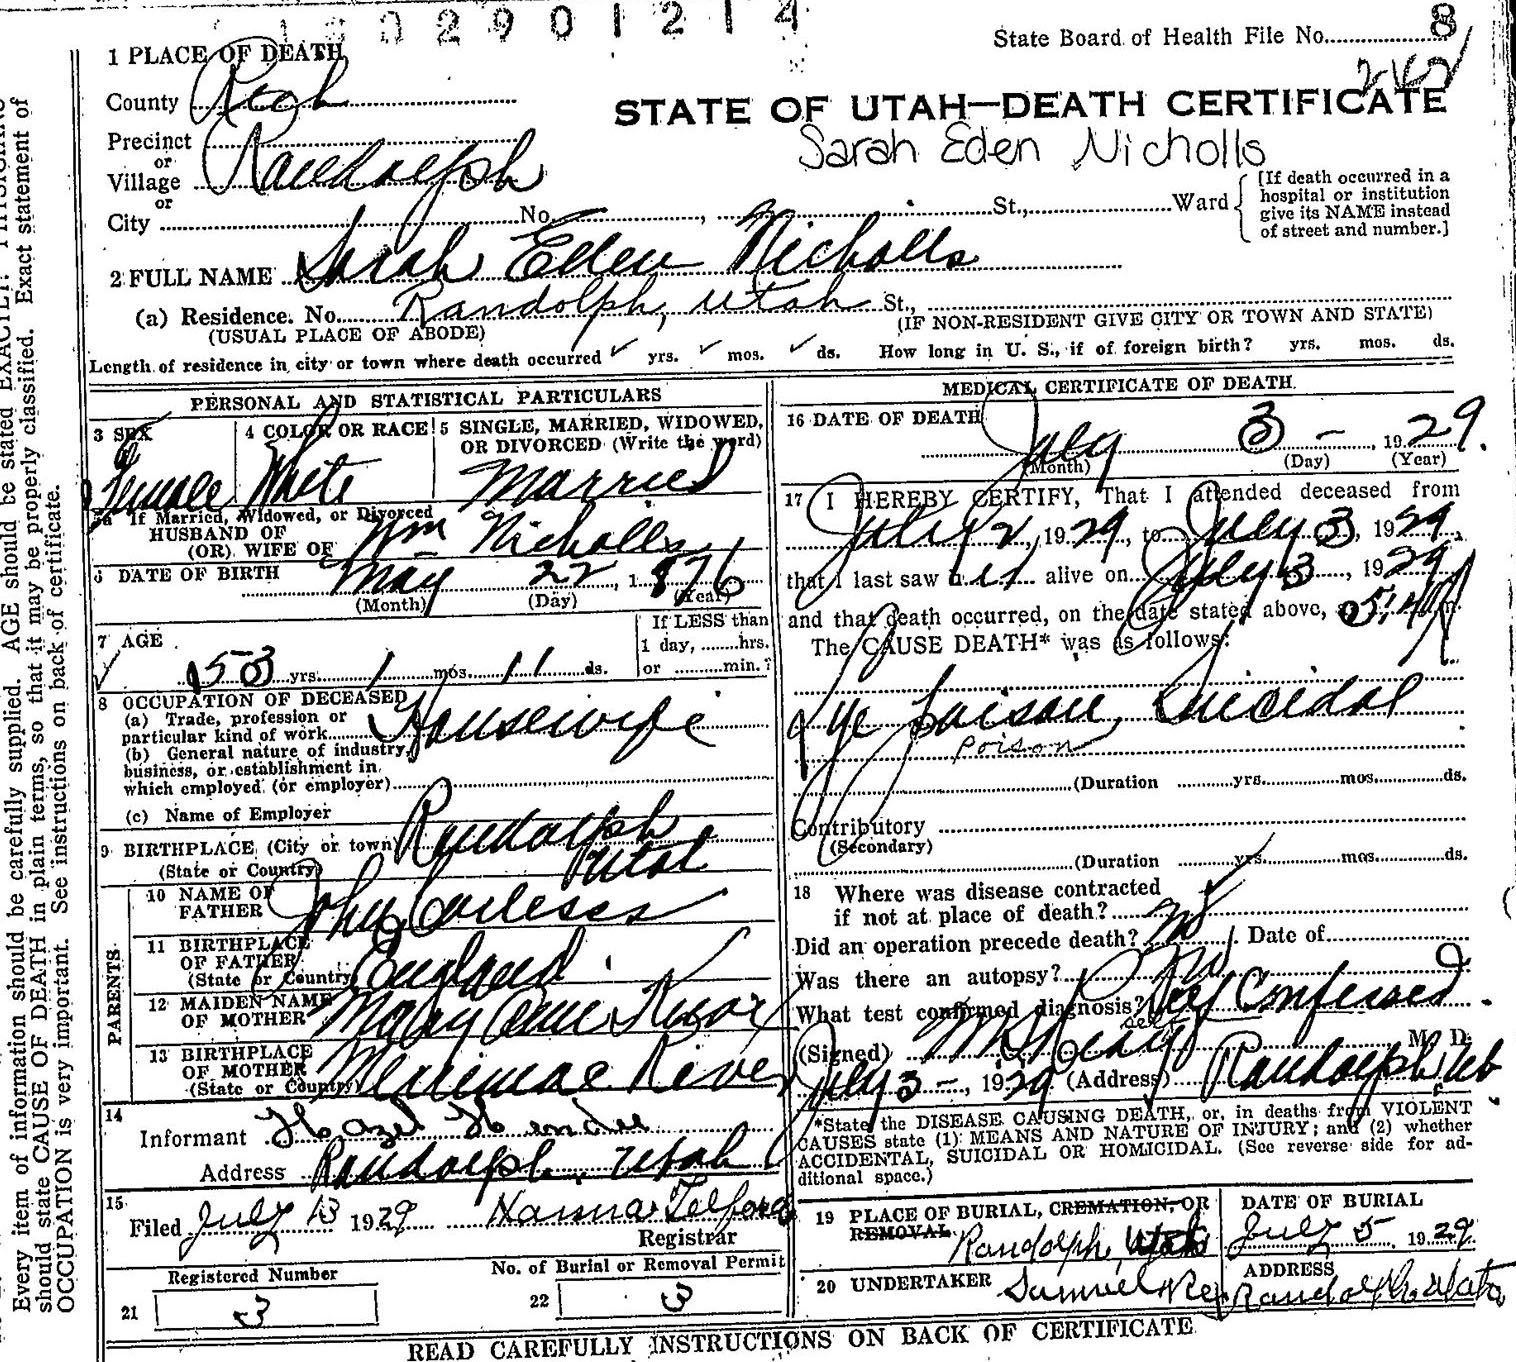 2901214
State Board of Health File No. 8
1 PLACE OF DEATH
County Rich
STATE OF UTAH—DEATH CERTIFICATE
Sarah Eden Nicholls
Precinct
or
Village Randolph
or
City No. St., Ward
[If death occurred in a
hospital or institution
give its NAME instead
of street and number.]
2 FULL NAME Sarah Eden Nicholls
(a) Residence. No. Randolph, Utah St.,
(USUAL PLACE OF ABODE) (IF NON-RESIDENT GIVE CITY OR TOWN AND STATE)
Length of residence in city or town where death occurred ✓ yrs. ✓ mos. ✓ ds. How long in U. S., if of foreign birth? yrs. mos. ds.
PERSONAL AND STATISTICAL PARTICULARS
3 SEX
Female
4 COLOR OR RACE
White
5 SINGLE, MARRIED, WIDOWED,
OR DIVORCED (Write the word)
Married
5a If Married, Widowed, or Divorced
HUSBAND OF
(OR) WIFE OF Wm Nicholls
6 DATE OF BIRTH May 22, 1876
(Month) (Day) (Year)
7 AGE
53 yrs. 1 mos. 11 ds.
If LESS than
1 day, hrs.
or min.?
8 OCCUPATION OF DECEASED
(a) Trade, profession or
particular kind of work Housewife
(b) General nature of industry,
business, or establishment in
which employed (or employer)
(c) Name of Employer
9 BIRTHPLACE (City or town) Randolph
(State or Country) Utah
PARENTS
10 NAME OF
FATHER John Corless
11 BIRTHPLACE
OF FATHER
(State or Country) England
12 MAIDEN NAME
OF MOTHER Mary Ann
13 BIRTHPLACE
OF MOTHER
(State or Country) Merrimac River
14
Informant Hazel
Address Randolph, Utah
15
Filed July 3 1929 Hanna Telford
Registrar
Registered Number
21 3
No. of Burial or Removal Permit
22 3
MEDICAL CERTIFICATE OF DEATH
16 DATE OF DEATH
July 3 - , 1929.
(Month) (Day) (Year)
17 I HEREBY CERTIFY, That I attended deceased from
July 2, 1929, to July 3, 1929,
that I last saw h alive on July 3, 1929
and that death occurred, on the date stated above,
The CAUSE DEATH* was as follows:
Lye Poison, Suicidal
Poison
(Duration yrs. mos. ds.
Contributory
(Secondary)
(Duration yrs. mos. ds.
18 Where was disease contracted
if not at place of death?
Did an operation precede death? No. Date of
Was there an autopsy? No
What test confirmed diagnosis? Self Confessed.
self
(Signed) M. D.
July 3 -, 1929 (Address) Randolph, Ut
*State the DISEASE CAUSING DEATH, or, in deaths from VIOLENT
CAUSES state (1) MEANS AND NATURE OF INJURY; and (2) whether
ACCIDENTAL, SUICIDAL OR HOMICIDAL. (See reverse side for ad-
ditional space.)
19 PLACE OF BURIAL, CREMATION, OR
REMOVAL Randolph, Utah
DATE OF BURIAL
July 5, 1929
20 UNDERTAKER Samuel Rex
ADDRESS
Randolph Utah
READ CAREFULLY INSTRUCTIONS ON BACK OF CERTIFICATE
Every item of information should be carefully supplied. AGE should be stated EXACTLY. PHYSICIANS
should state CAUSE OF DEATH in plain terms, so that it may be properly classified. Exact statement of
OCCUPATION is very important. See instructions on back of certificate.